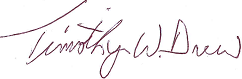 Timothy W. Drew